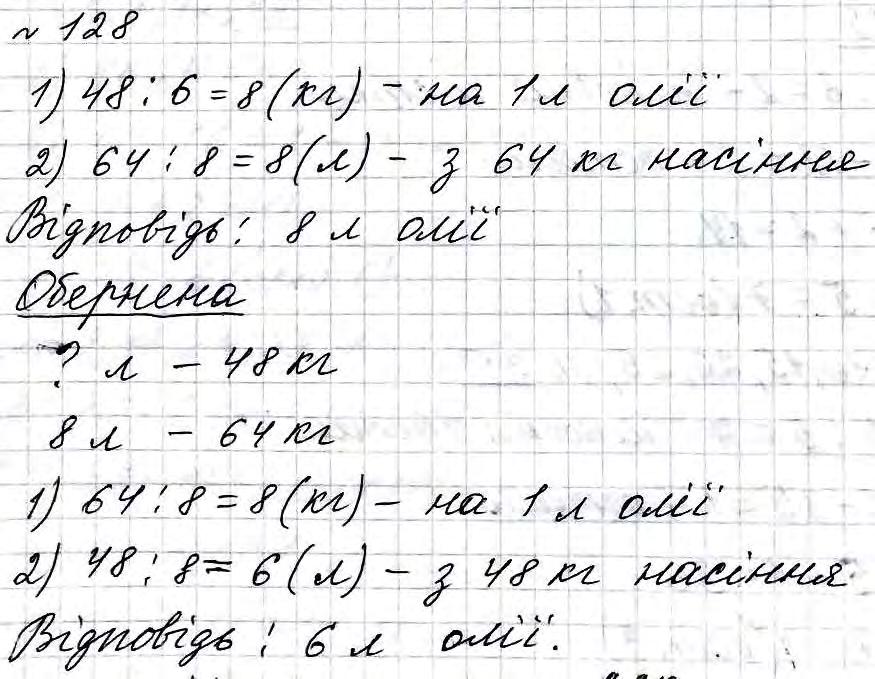 № 128
1) 48 : 6 = 8 (кг) - на 1 л олії
2) 64 : 8 = 8 (л) - з 64 кг насіння
Відповідь: 8 л олії
Обернена
? л - 48 кг
8 л - 64 кг
1) 64 : 8 = 8 (кг) - на 1 л олії
2) 48 : 8 = 6 (л) - з 48 кг насіння.
Відповідь: 6 л олії.